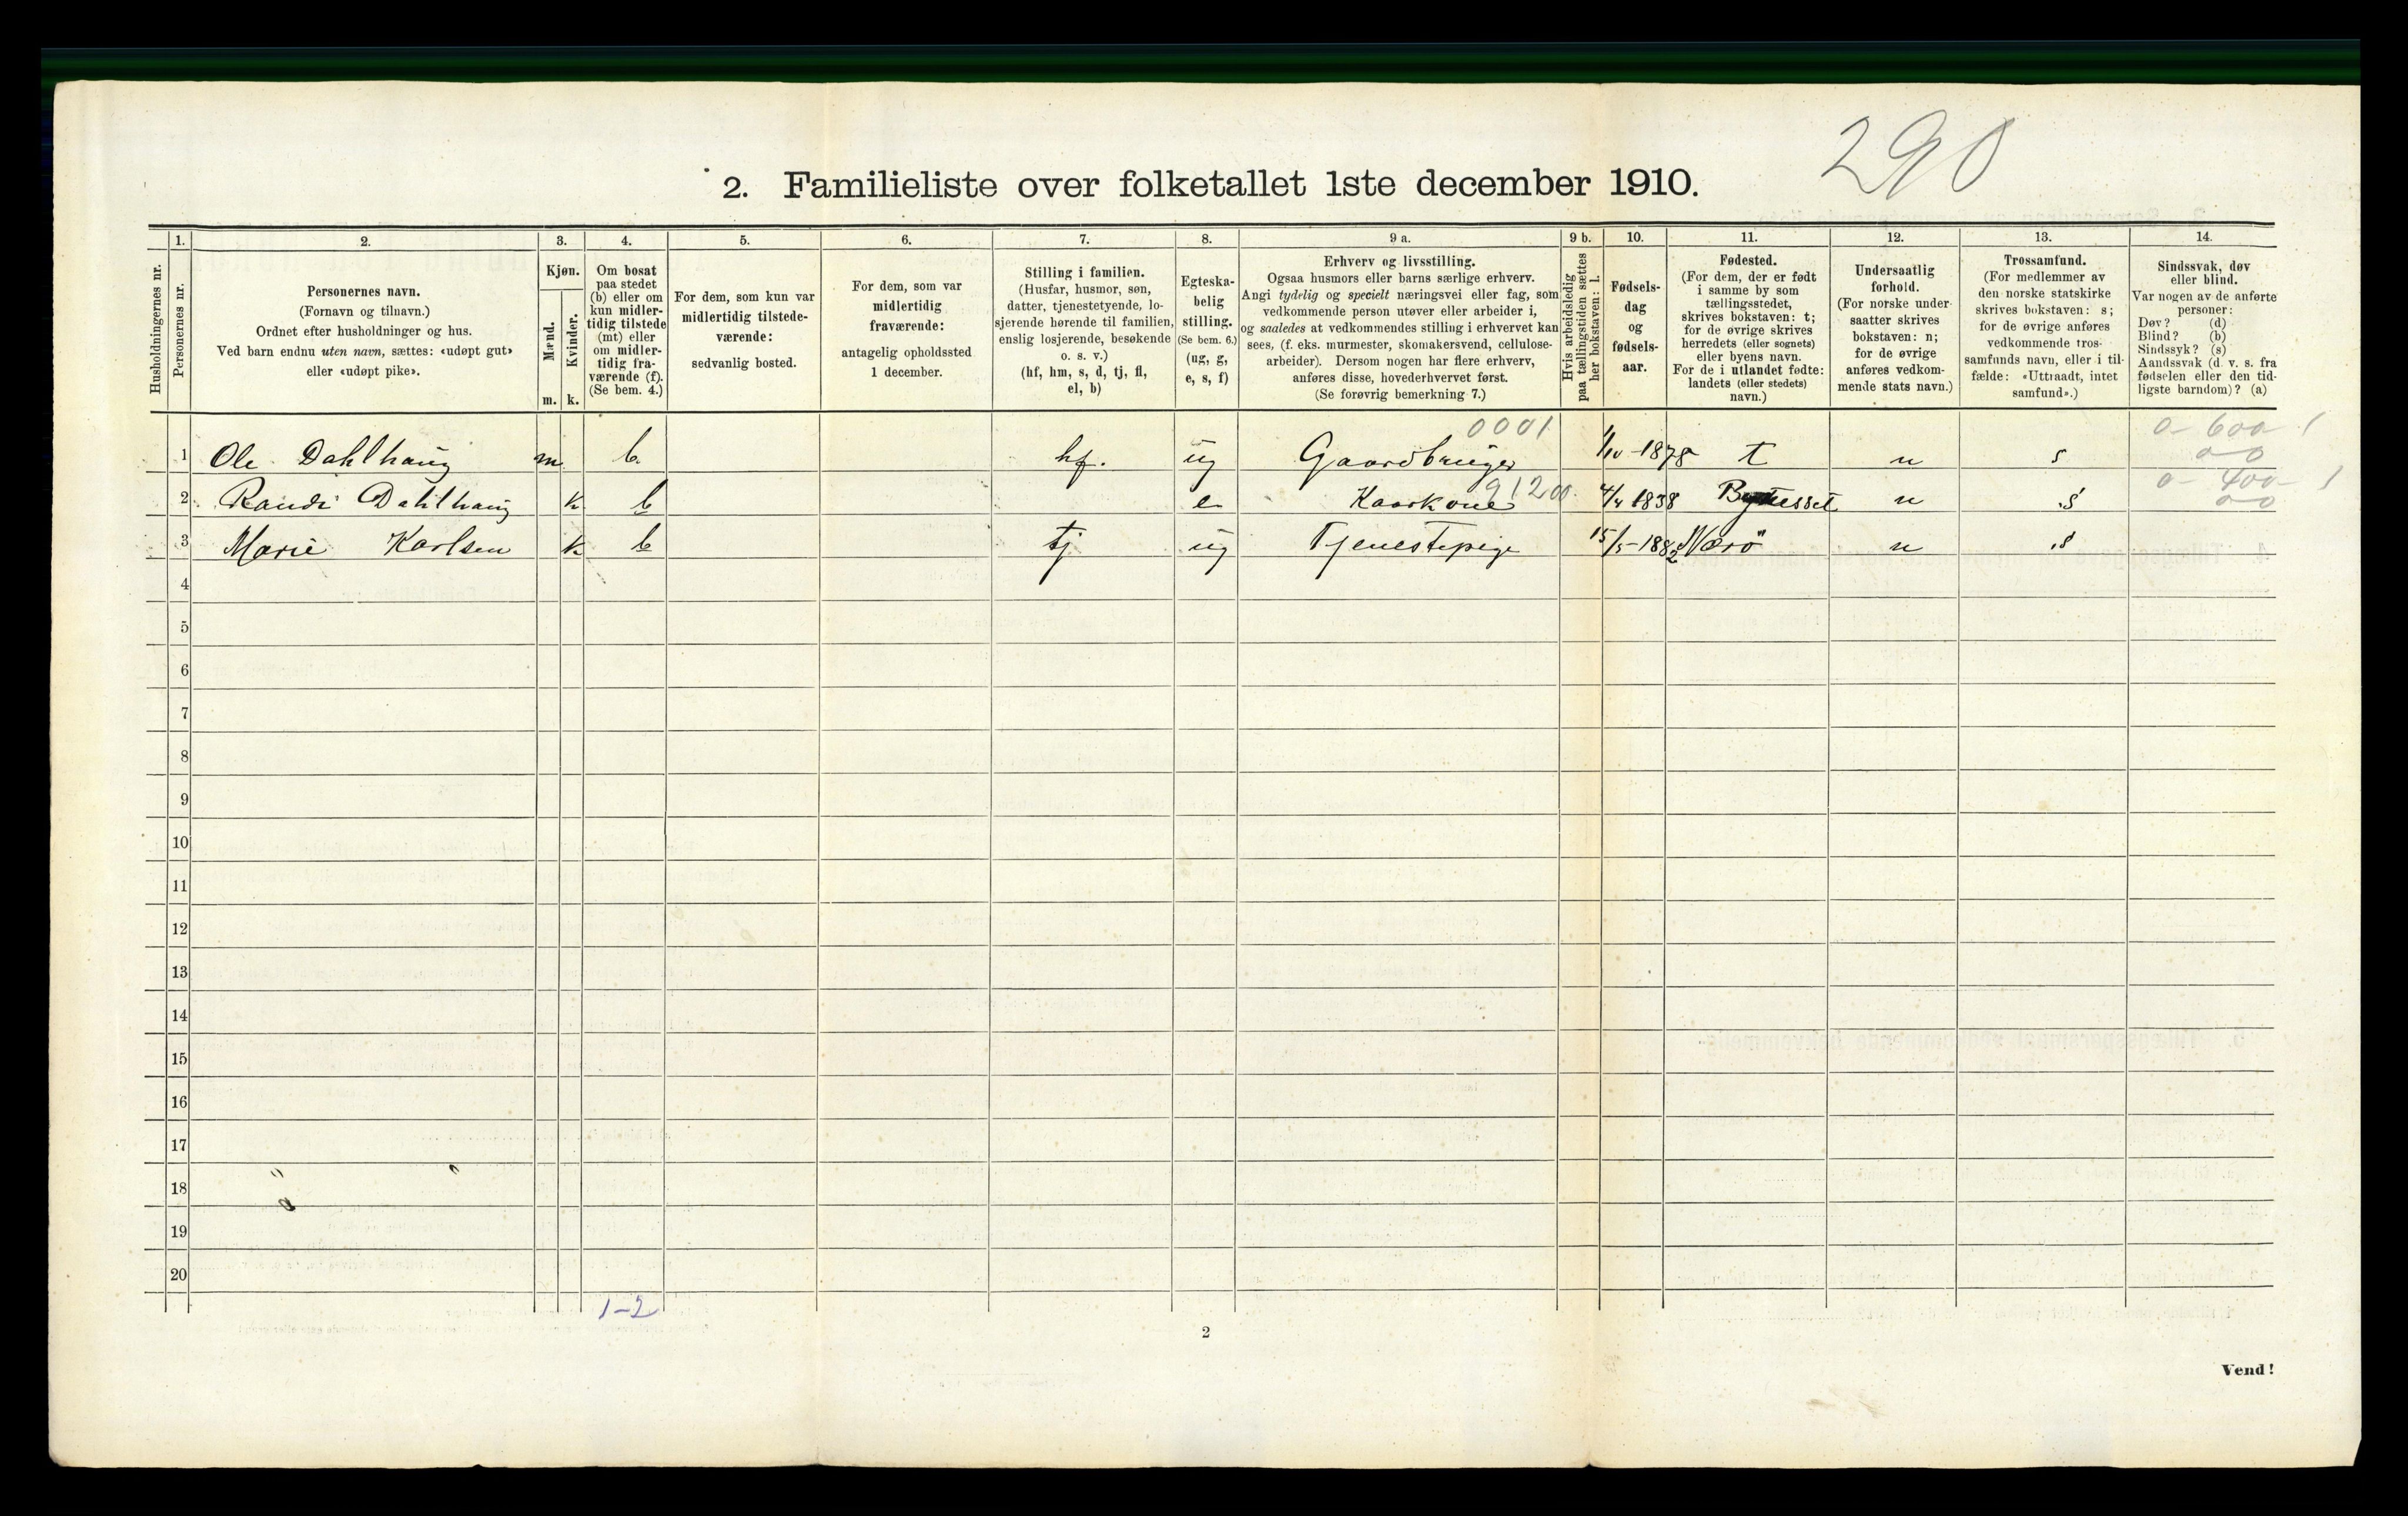 290
2. Familieliste over folketallet 1ste december 1910.
1. 2. 3. 4. 5. 6. 7. 8. 9 a. 9 b. 10. 11. 12. 13. 14.
Husholdningernes nr.
Personernes nr.
Personernes navn.
(Fornavn og tilnavn.)
Ordnet efter husholdninger og hus.
Ved barn endnu uten navn, sættes: «udøpt gut»
eller «udøpt pike».
Kjøn.
Mænd.
Kvinder.
m. k.
Om bosat
paa stedet
(b) eller om
kun midler-
tidig tilstede
(mt) eller
om midler-
tidig fra-
værende (f).
(Se bem. 4.)
For dem, som kun var
midlertidig tilstede-
værende:
sedvanlig bosted.
For dem, som var
midlertidig
fraværende:
antagelig opholdssted
1 december.
Stilling i familien.
(Husfar, husmor, søn,
datter, tjenestetyende, lo-
sjerende hørende til familien,
enslig losjerende, besøkende
o. s. v.)
(hf, hm, s, d, tj, fl,
el, b)
Egteska-
belig
stilling.
(Se bem. 6.)
(ug, g,
e, s, f)
Erhverv og livsstilling.
Ogsaa husmors eller barns særlige erhverv.
Angi tydelig og specielt næringsvei eller fag, som
vedkommende person utøver eller arbeider i,
og saaledes at vedkommendes stilling i erhvervet kan
sees, (f. eks. murmester, skomakersvend, cellulose-
arbeider). Dersom nogen har flere erhverv,
anføres disse, hovederhvervet først.
(Se forøvrig bemerkning 7.)
Hvis arbeidsledig
paa tællingstiden sættes
her bokstaven: l.
Fødsels-
dag
og
fødsels-
aar.
Fødested.
(For dem, der er født
i samme by som
tællingsstedet,
skrives bokstaven: t;
for de øvrige skrives
herredets (eller sognets)
eller byens navn.
For de i utlandet fødte:
landets (eller stedets)
navn.)
Undersaatlig
forhold.
(For norske under-
saatter skrives
bokstaven: n;
for de øvrige
anføres vedkom-
mende stats navn.)
Trossamfund.
(For medlemmer av
den norske statskirke
skrives bokstaven: s;
for de øvrige anføres
vedkommende tros-
samfunds navn, eller i til-
fælde: «Uttraadt, intet
samfund».)
Sindssvak, døv
eller blind.
Var nogen av de anførte
personer:
Døv? (d)
Blind? (b)
Sindssyk? (s)
Aandssvak (d. v. s. fra
fødselen eller den tid-
ligste barndom)? (a)
0001 0-600-1
1 Ole Dahlhaug m b hf. ug Gaardbruger 1/10-1878 t n s 00
912 00. 0-400-1
2 Randi Dahlhaug k b e Kaarkone 4/4 1838 n s 00
3 Marie Karlsen k b tj ug Tjenestepige 15/5-1882 Nærø n s
4
5
6
7
8
9
10
11
12
13
14
15
16
17
18
19
20
1-2
2
Vend!